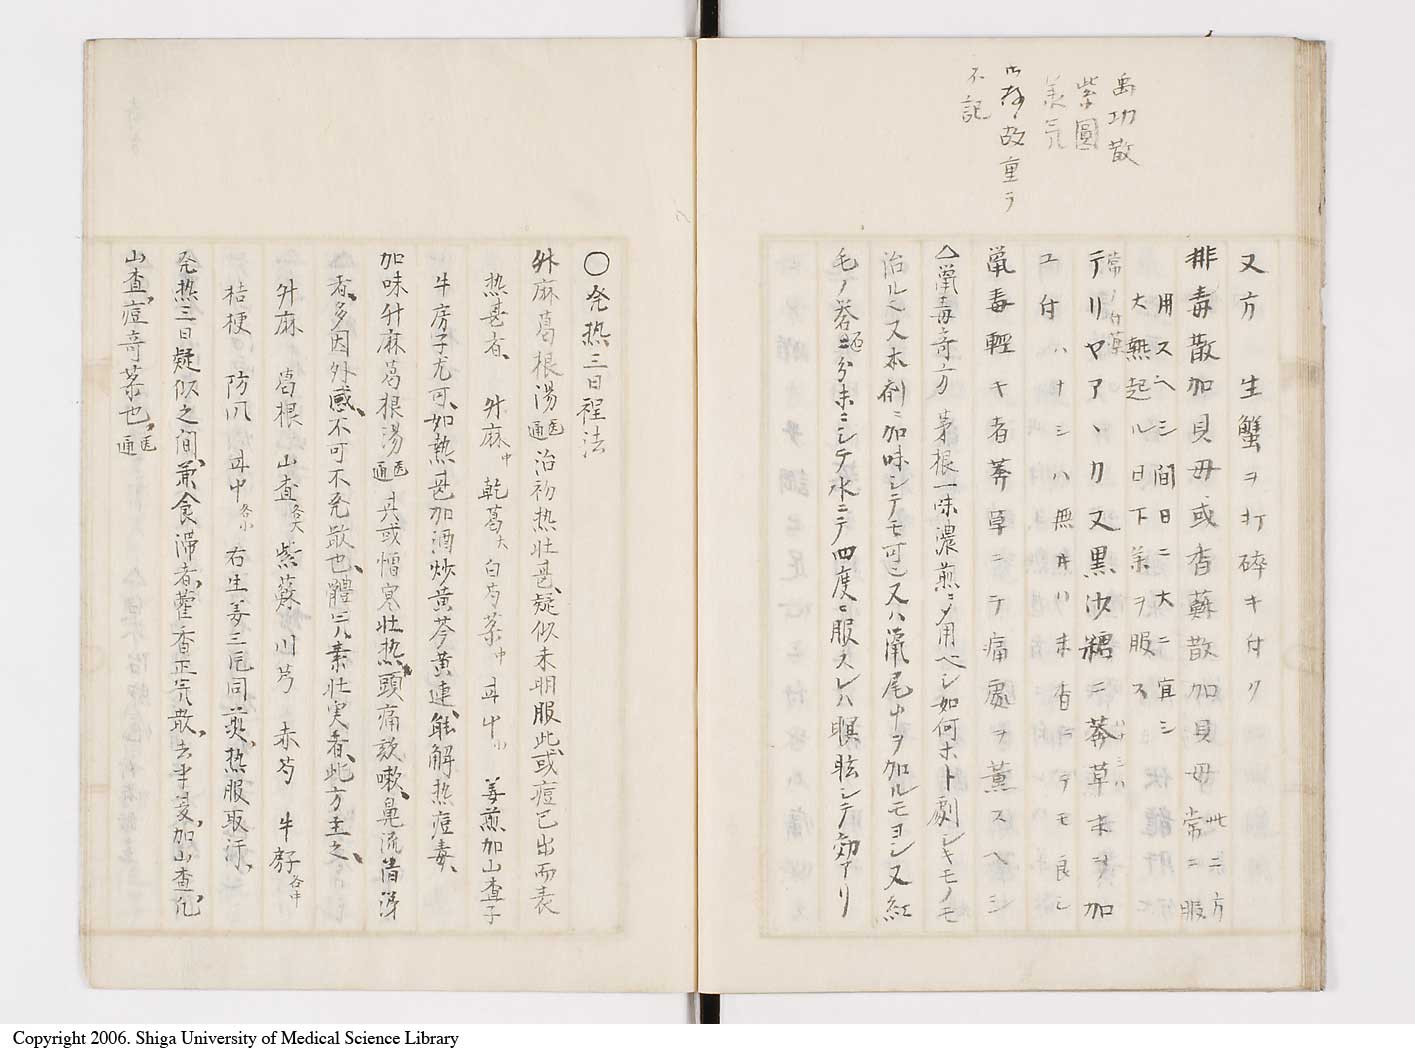 禹功散
紫圓
故重ラ
不記
又方 生蟹ヲ打碎キ付ク
排毒散加貝母或香蘇散加貝母常ニ服
此ニ方
用スヘシ間日ニ大ニ宜シ
大概起ル日下薬ヲ服ス
常ノ付薬
テリヤアヽカ又黒沙糖ニ莽草末ヲ加
ユ付ハナシハ無井ハ末香ニテモ良シ
瘡毒輕キ者莽草ニテ痛處ヲ薫スヘシ
△瘡毒奇方 茅根一味濃煎ニメ用ベシ如何ホト劇シキモノモ
治ルベス本剤ニ加味シテモ可也又ハ瀉尾中ヲ加ルモヨシ又紅
毛ノ第二分末ニシテ水ニテ四度ニ服スレハ瞑眩シテ効アリ
〇発热三日程法
升麻葛根湯医通治初热壮甚、疑似未明服此、或痘已出而表
热甚者、 升麻中 乾葛大 白芍薬中 甘中小 姜煎加山査子
牛房子尤可、如熱甚加酒炒黄芩黄連、能解热痘毒、
加味升麻葛根湯医通 其或憎寒壮热、頭痛咳嗽、鼻流清涕
者、多因外感、不可不発散也、體气素壮実者、此方主之、
升麻 葛根 山査各大 紫蘇 川芎 赤芍 牛房子各中
桔梗 防风 甘中各小 右生姜三片同煎、热服取汗、
発热三日疑似之间、兼食滞者、藿香正气散、去半夏、加山査、凡
山査、痘奇薬也、医通
Copyright 2006. Shiga University of Medical Science Library